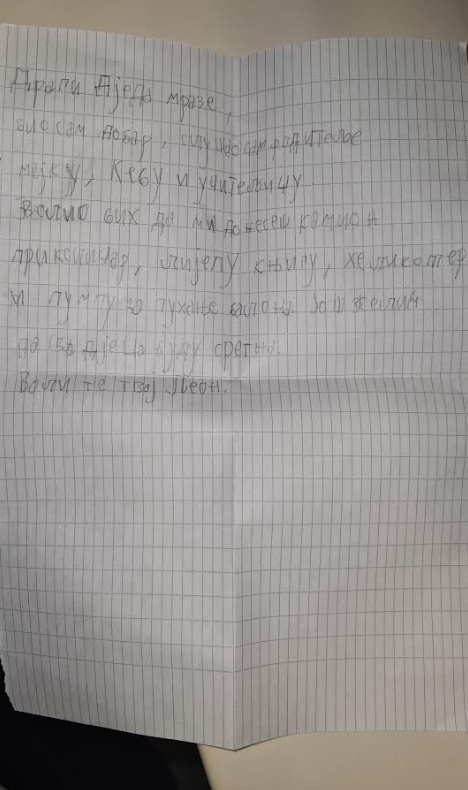 Драги Дједа мразе,
био сам добар, слушао сам родитеље
мајку, Кебу и учитељицу
Волио бих да ми донесеш камион
приколичар, лијепу књигу, хеликоптер
и пумпу за пухање балона. Још желим
да сва дјеца буду сретна.
Воли те твој Леон.